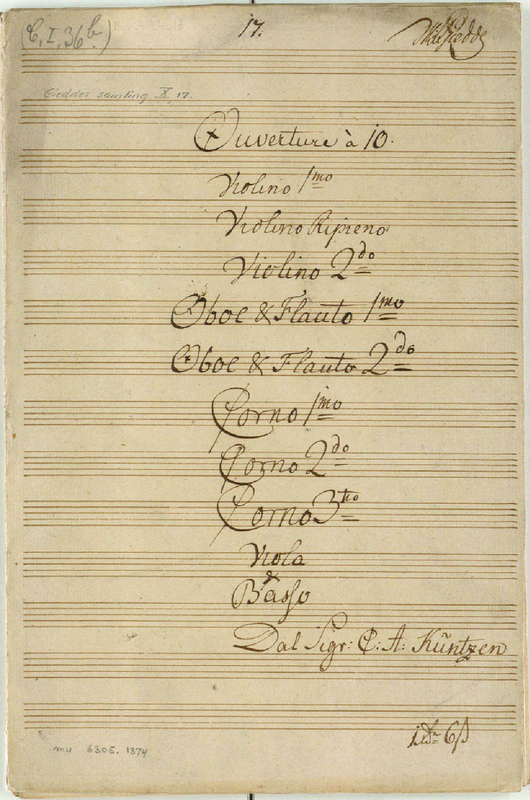 (C, I, 36b.)
17.
Gieddes samling X 17.
Ouverture à 10.
Violino 1mo
Violino Ripieno
Violino 2do
Oboe & Flauto 1mo
Oboe & Flauto 2do
Corno 1mo
Corno 2do
Corno 3tio
Viola
&
Basso
Dal Sigr: C: A: Kuntzen
mu 6305. 1374